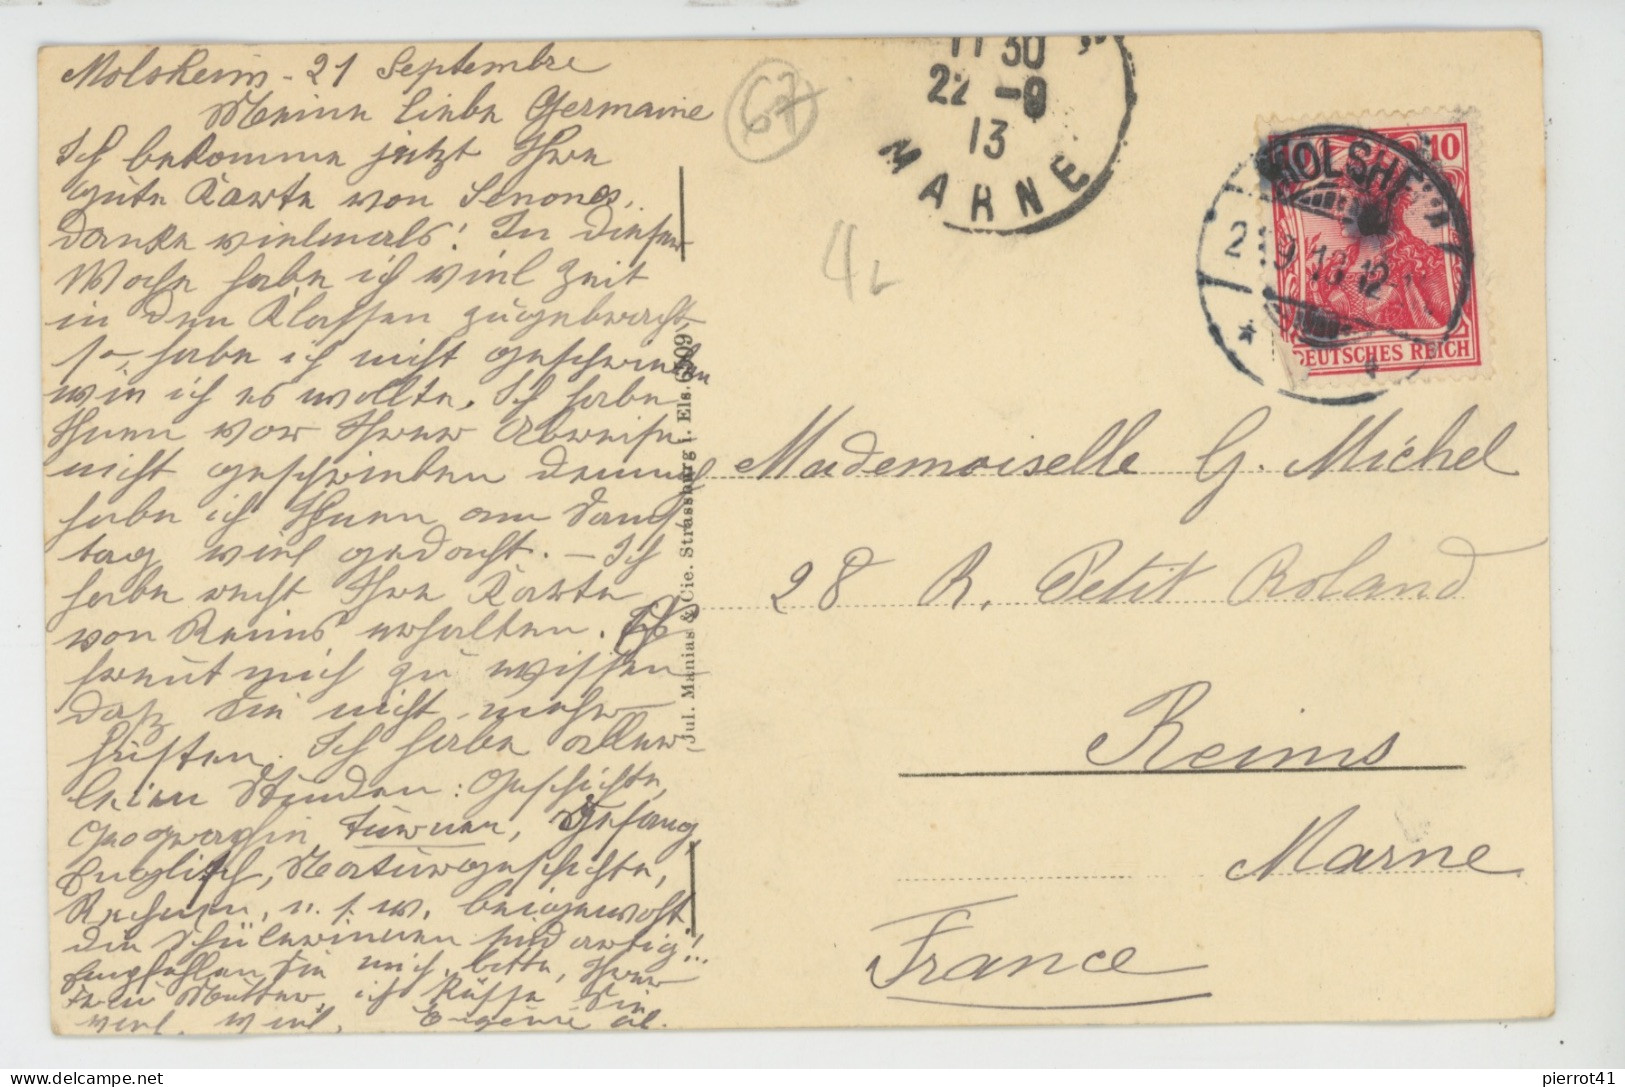 Molsheim - 21 Septembre
Meine liebe Germaine
Ich bekomme jetzt Ihre
gute Karte von Senones,
danke vielmals! In dieser
Woche habe ich viel Zeit
in den Klassen zugebracht,
so habe ich nicht geschrieben
wie ich es wollte. Ich habe
Ihnen vor Ihrer Abreise
nicht geschrieben dennoch
habe ich Ihnen am Sams
tag viel gedacht. - Ich
habe recht Ihre Karte
von Reims erhalten. Es
freut mich zu wissen
daß Sie nicht mehr
husten. Ich habe aller-
leien Stunden: Geschichte,
Geographie Turnen, Gesang,
Englisch, Naturgeschichte,
Rechnen, u. s. w. beigewohnt.
die Schülerinnen sind artig!!
Empfehlen Sie mich, bitte, Ihrer
Frau Mutter, ich küsse Sie
viel, viel, Eugénie
67
4L
11 30
22 - 9
13
MARNE
MOLSHEIM
21.9.13.12-1
10
DEUTSCHES REICH
Jul. Manias & Cie. Strassburg i. Els. 6909
Mademoiselle G. Michel
28 R. Petit Roland
Reims
Marne
France
pierrot41